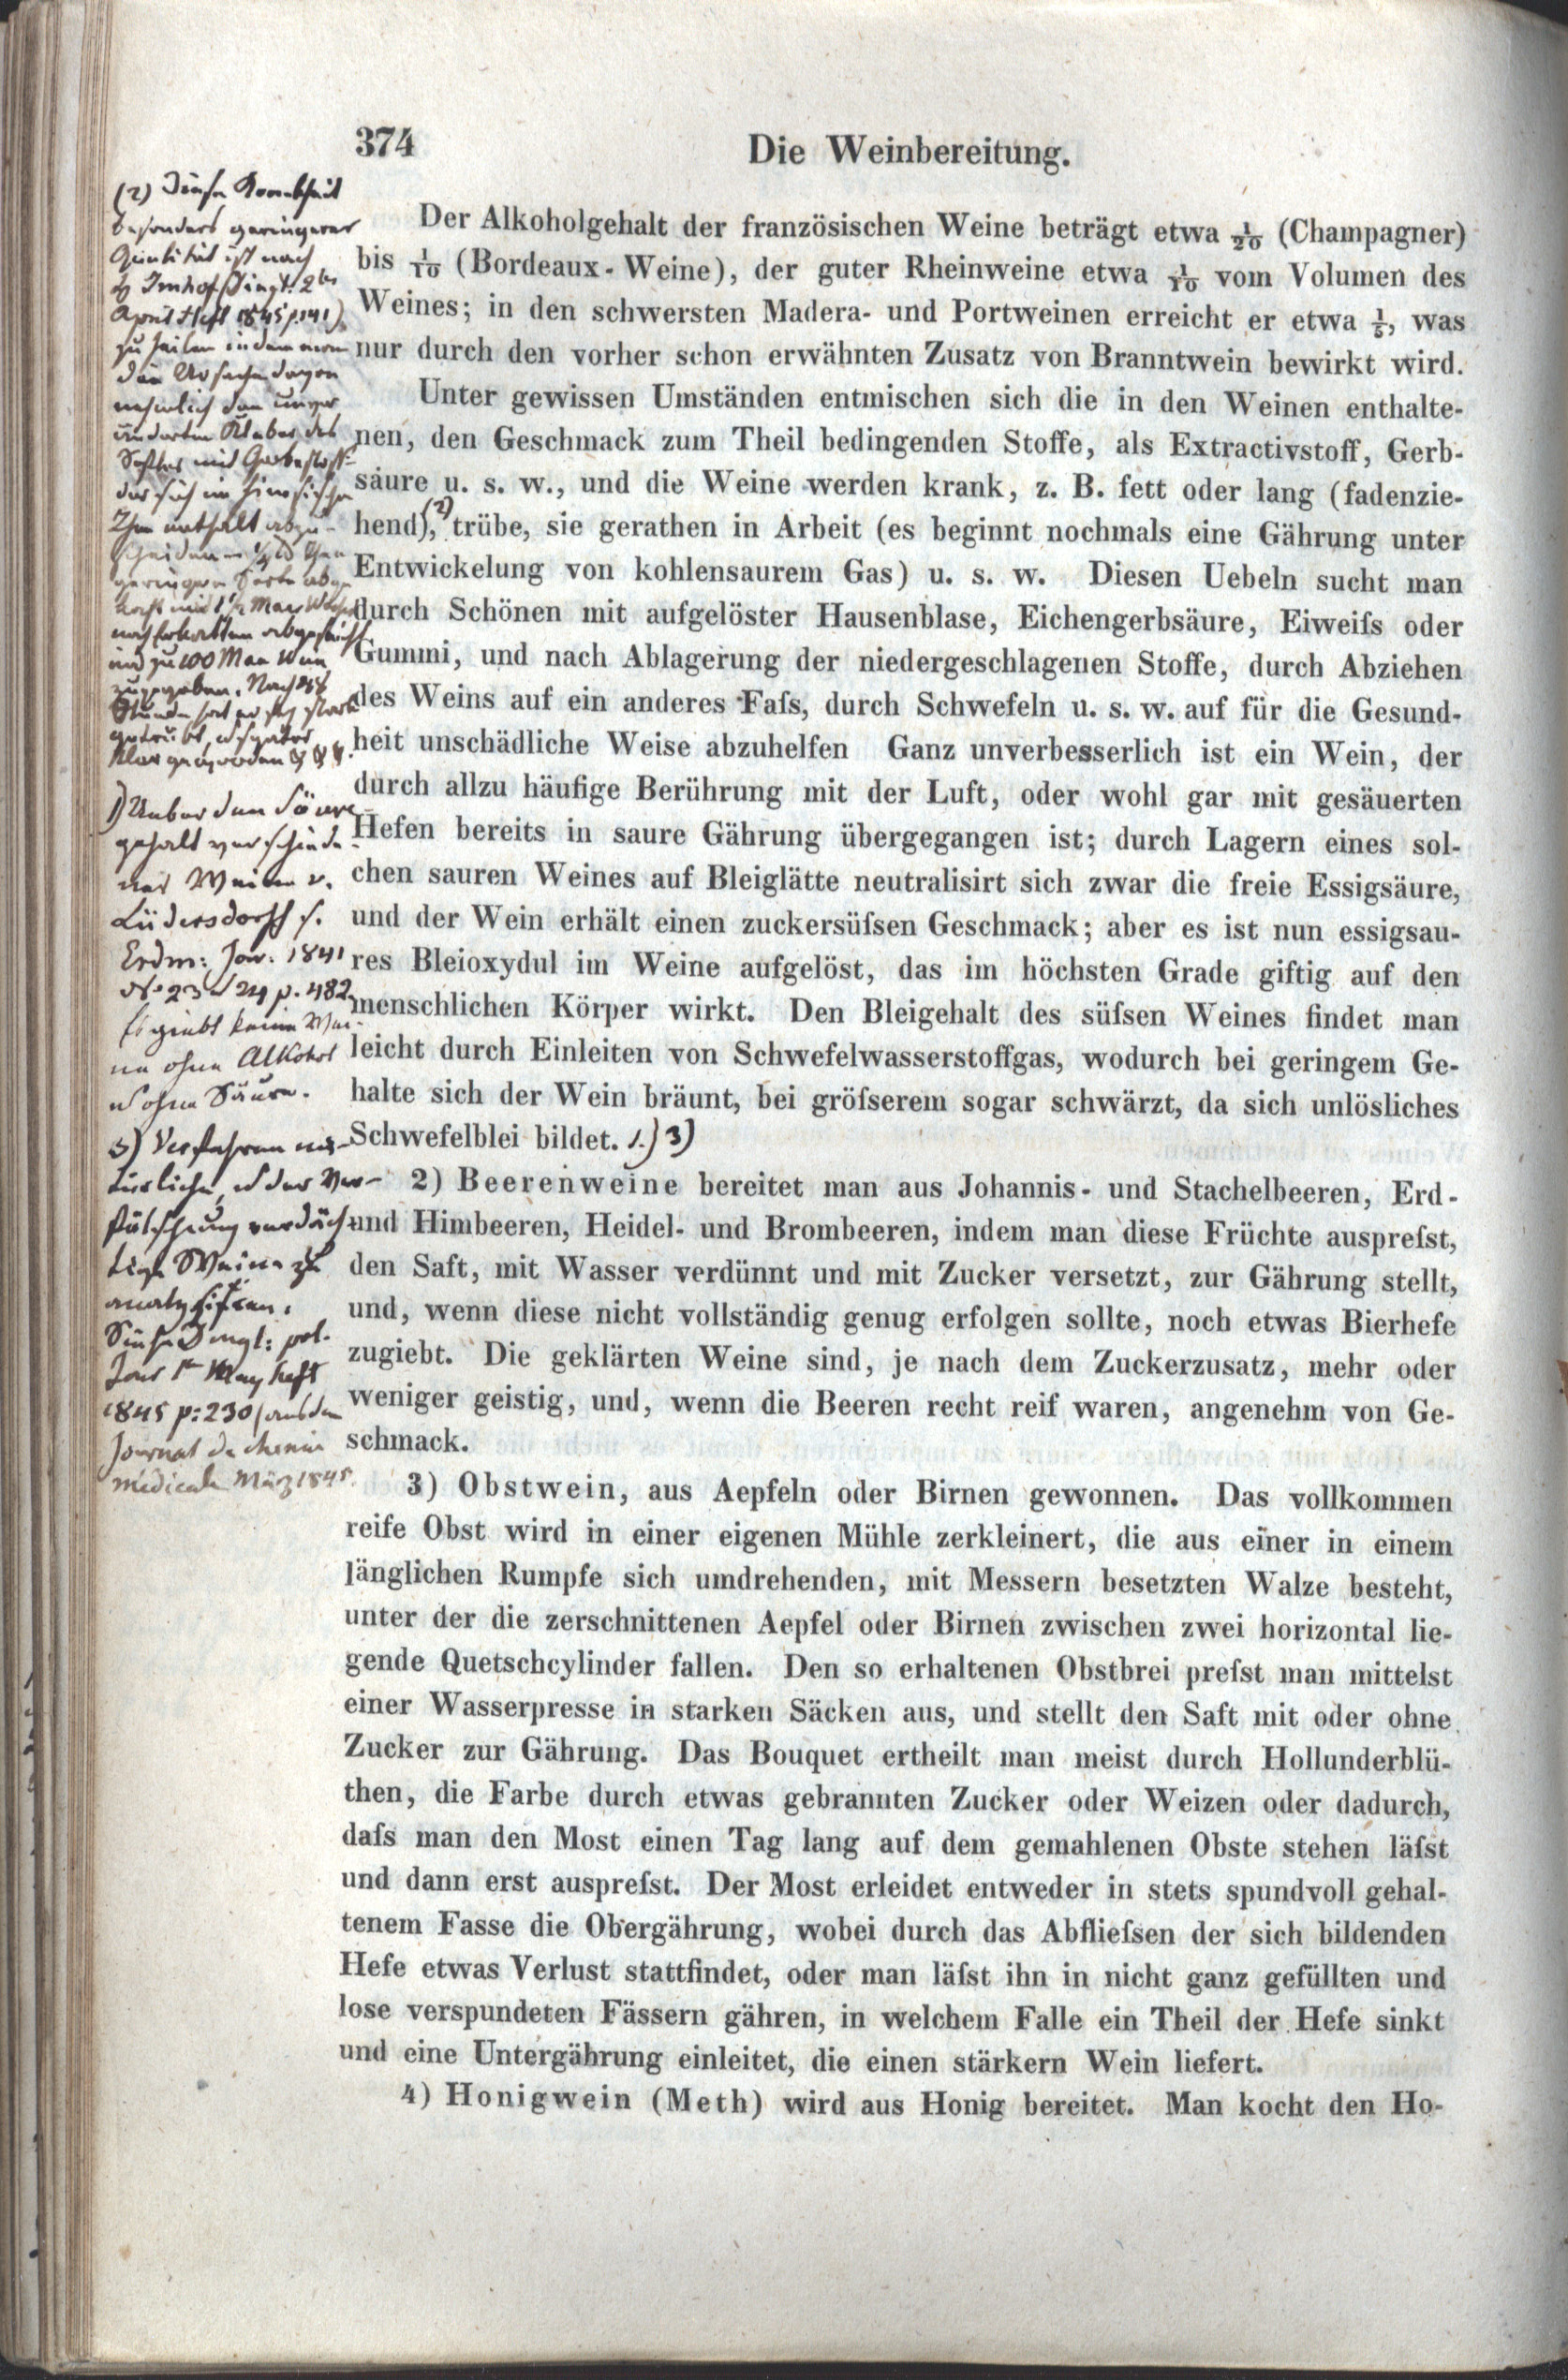 374
Die Weinbereitung.
Der Alkoholgehalt der französischen Weine beträgt etwa 1/20 (Champagner)
bis 1/10 (Bordeaux-Weine), der guter Rheinweine etwa 1/10 vom Volumen des
Weines; in den schwersten Madera- und Portweinen erreicht er etwa 1/5, was
nur durch den vorher schon erwähnten Zusatz von Branntwein bewirkt wird.
Unter gewissen Umständen entmischen sich die in den Weinen enthalte-
nen, den Geschmack zum Theil bedingenden Stoffe, als Extractivstoff, Gerb-
säure u. s. w., und die Weine werden krank, z. B. fett oder lang (fadenzie-
hend),(2) trübe, sie gerathen in Arbeit (es beginnt nochmals eine Gährung unter
Entwickelung von kohlensaurem Gas) u. s. w. Diesen Uebeln sucht man
durch Schönen mit aufgelöster Hausenblase, Eichengerbsäure, Eiweiſs oder
Gummi, und nach Ablagerung der niedergeschlagenen Stoffe, durch Abziehen
des Weins auf ein anderes Faſs, durch Schwefeln u. s. w. auf für die Gesund-
heit unschädliche Weise abzuhelfen Ganz unverbesserlich ist ein Wein, der
durch allzu häufige Berührung mit der Luft, oder wohl gar mit gesäuerten
Hefen bereits in saure Gährung übergegangen ist; durch Lagern eines sol-
chen sauren Weines auf Bleiglätte neutralisirt sich zwar die freie Essigsäure,
und der Wein erhält einen zuckersüſsen Geschmack; aber es ist nun essigsau-
res Bleioxydul im Weine aufgelöst, das im höchsten Grade giftig auf den
menschlichen Körper wirkt. Den Bleigehalt des süſsen Weines findet man
leicht durch Einleiten von Schwefelwasserstoffgas, wodurch bei geringem Ge-
halte sich der Wein bräunt, bei gröſserem sogar schwärzt, da sich unlösliches
Schwefelblei bildet. 1.) 3)
2) Beerenweine bereitet man aus Johannis- und Stachelbeeren, Erd-
und Himbeeren, Heidel- und Brombeeren, indem man diese Früchte auspreſst,
den Saft, mit Wasser verdünnt und mit Zucker versetzt, zur Gährung stellt,
und, wenn diese nicht vollständig genug erfolgen sollte, noch etwas Bierhefe
zugiebt. Die geklärten Weine sind, je nach dem Zuckerzusatz, mehr oder
weniger geistig, und, wenn die Beeren recht reif waren, angenehm von Ge-
schmack.
3) Obstwein, aus Aepfeln oder Birnen gewonnen. Das vollkommen
reife Obst wird in einer eigenen Mühle zerkleinert, die aus einer in einem
länglichen Rumpfe sich umdrehenden, mit Messern besetzten Walze besteht,
unter der die zerschnittenen Aepfel oder Birnen zwischen zwei horizontal lie-
gende Quetschcylinder fallen. Den so erhaltenen Obstbrei preſst man mittelst
einer Wasserpresse in starken Säcken aus, und stellt den Saft mit oder ohne
Zucker zur Gährung. Das Bouquet ertheilt man meist durch Hollunderblü-
then, die Farbe durch etwas gebrannten Zucker oder Weizen oder dadurch,
daſs man den Most einen Tag lang auf dem gemahlenen Obste stehen läſst
und dann erst auspreſst. Der Most erleidet entweder in stets spundvoll gehal-
tenem Fasse die Obergährung, wobei durch das Abflieſsen der sich bildenden
Hefe etwas Verlust stattfindet, oder man läſst ihn in nicht ganz gefüllten und
lose verspundeten Fässern gähren, in welchem Falle ein Theil der Hefe sinkt
und eine Untergährung einleitet, die einen stärkern Wein liefert.
4) Honigwein (Meth) wird aus Honig bereitet. Man kocht den Ho-
(2) Diese Krankheit
besonders geringerer
Qualität ist nach
Imhof (Dingl: 2tes
April Heft 1845 p.141)
zu heilen indem man
die Ursache davon
nehmlich den unver
änderten Kleber des
Saftes mit Gerbestoff
der sich im
Thee enthält abzu-
scheiden
geringere Sorte abge
kocht mit 1 1/2 Maas Wasser
nach Erkalten abgeseiht
und zu 100 Maas Wein
zugegeben. Nach 48
Stunden hat er sich stark
getrübt, später
klar geworden
1) Ueber den Säure
gehalt verschiede-
ner Weine v.
Lüdersdorff s.
Erdm: Jour. 1841
No 23 u 24 p. 482
Es giebt keine Wei-
ne ohne Alkohol
u ohne Säure.
3) Verfahren na-
türliche, u der Ver-
fälschung verdäch-
tige Weine zu
analysiren.
Siehe Dingl: pol.
Jour 1tes May heft
1845 p: 230 (aus dem
Journal de chemie
médicale März 1845.